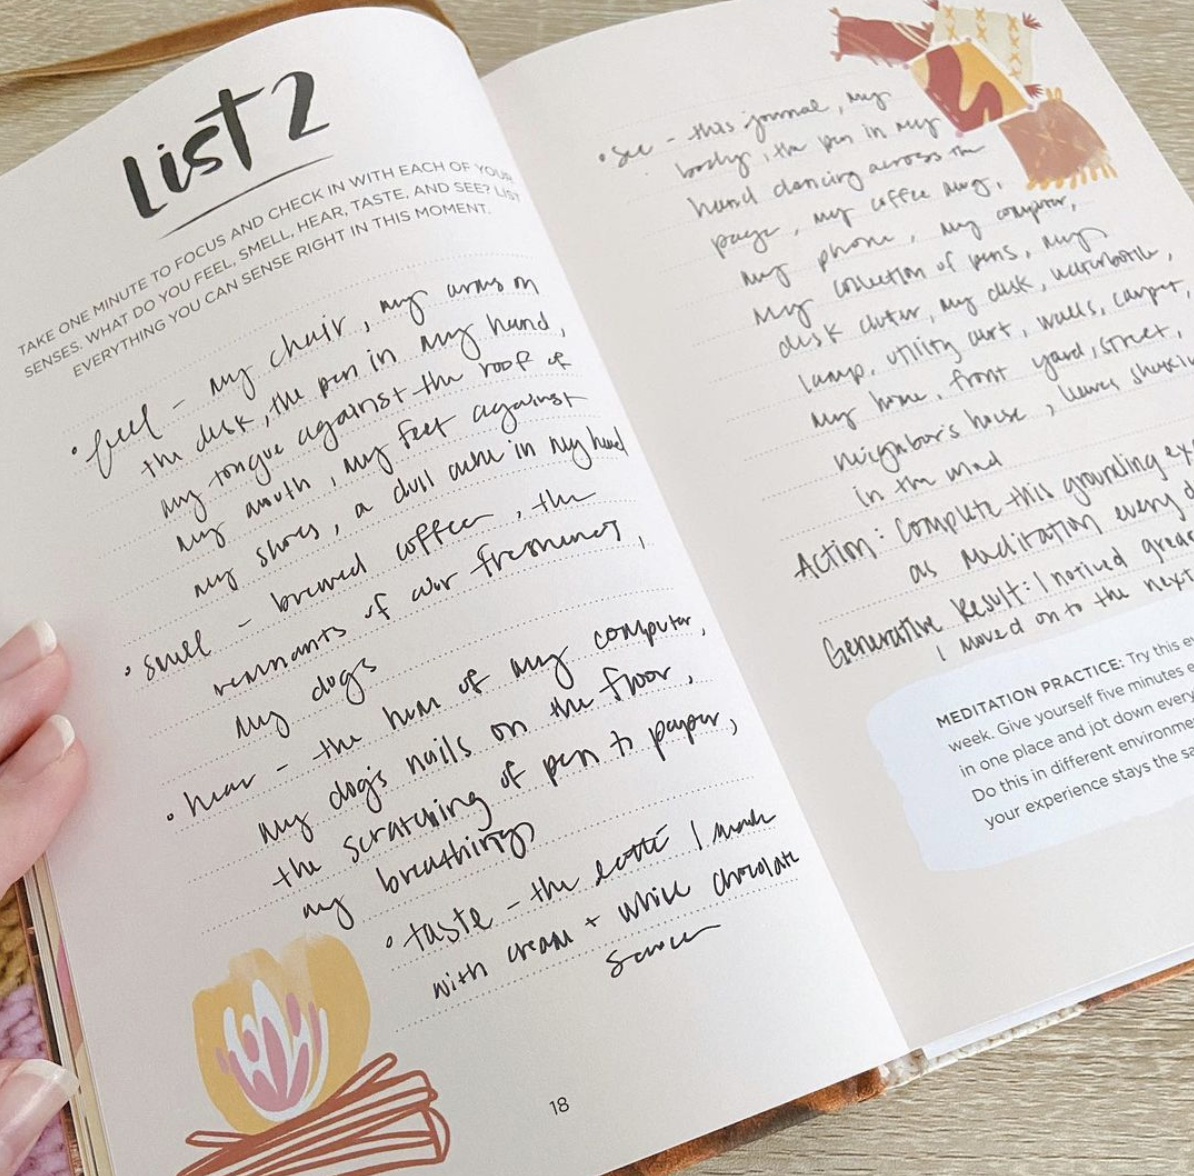 List 2
TAKE ONE MINUTE TO FOCUS AND CHECK IN WITH EACH OF YOUR
SENSES. WHAT DO YOU FEEL, SMELL, HEAR, TASTE, AND SEE? LIST
EVERYTHING YOU CAN SENSE RIGHT IN THIS MOMENT.
• feel - my chair, my arms on
the desk, the pen in my hand,
my tongue against the roof of
my mouth, my feet against
my shoes, a dull ache in my head
• smell - brewed coffee, the
remnants of air freshener,
my dogs
• hear - the hum of my computer,
my dog's nails on the floor,
the scratching of pen to paper,
my breathing
• taste - the latte I made
with cream + white chocolate
sauce
18
• see - this journal, my
body, the pen in my
hand dancing across the
page, my coffee mug,
my phone, my computer,
my collection of pens, my
desk clutter, my desk, waterbottle,
lamp, utility cart, walls, carpet,
my home, front yard, street,
neighbor's house, leaves
in the
Action: Complete this grounding
as meditation every
Generative Result: I noticed
I moved on to the next
MEDITATION PRACTICE: Try this
week. Give yourself five minutes
in one place and jot down
Do this in different
your experience stays the